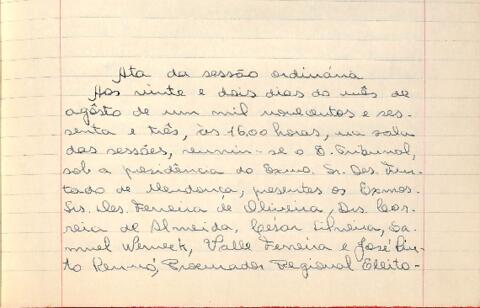 Ata da sessão ordinária
Aos vinte e dois dias do mês de
agôsto de um mil novecentos e ses-
senta e três, às 16,00 horas, na sala
das sessões, reuniu-se o E. Tribunal,
sob a presidência do Exmo. Sr. Des. Fur-
tado de Mendonça, presentes os Exmos.
Srs. Des. Ferreira de Oliveira, Drs. Cor-
reia de Almeida, César Silveira, Sa-
muel Werneck, Valle Ferreira e José Pin-
to Renno, Procurador Regional Eleito-